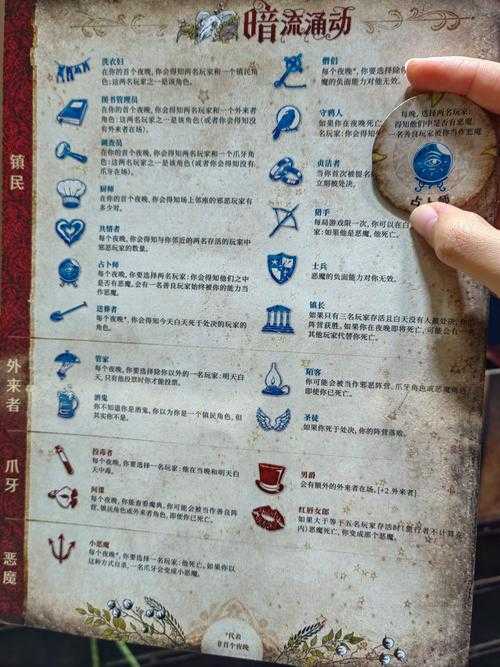 暗流涌动
镇民
洗衣妇
在你的首个夜晚，你会得知两名玩家和一个镇民角
色：这两名玩家之一是该角色。
图书管理员
在你的首个夜晚，你会得知两名玩家和一个外来者
角色：这两名玩家之一是该角色（或者你会得知没
有外来者在场）。
调查员
在你的首个夜晚，你会得知两名玩家和一个爪牙角
色：这两名玩家之一是该角色（或者你会得知没有
爪牙在场）。
厨师
在你的首个夜晚，你会得知场上邻座的邪恶玩家有
多少对。
共情者
每个夜晚，你会得知与你邻近的两名存活的玩家中
邪恶玩家的数量。
占卜师
每个夜晚，你要选择两名玩家：你会得知他们之中
是否有恶魔。会有一名善良玩家始终被你的能力当
作恶魔。
送葬者
每个夜晚*，你会得知今天白天死于处决的玩家的
角色。
僧侣
每个夜晚*，你要选择除你
魔的负面能力对你无效。
守鸦人
如果你在夜晚死亡
名玩家：你会得知他
贞洁者
当你首次被提名
立刻被处决。
猎手
每局游戏限一次，你可以在白
家：如果他是恶魔，他死亡。
士兵
恶魔的负面能力对你无效。
镇长
如果只有三名玩家存活且白天没有人被处决，你的
阵营获胜。如果你在夜晚即将死亡，可能会有一名
其他玩家代替你死亡。
每晚，选择两名玩家：
得知他们中是否有恶魔。
一名善良玩家被你当作恶魔
占卜师
外来者
管家
每个夜晚，你要选择除你以外的一名玩家：明天白
天，只有他投票时你才能投票。
酒鬼
你不知道你是酒鬼。你以为你是一个镇民角色，但
其实你不是。
陌客
你可能会被当作邪恶阵营、爪牙角色或恶魔角色，
即使你已死亡。
圣徒
如果你死于处决，你的阵营落败。
爪牙
投毒者
每个夜晚，你要选择一名玩家：他在当晚和明天白
天中毒。
间谍
每个夜晚，你能查看魔典。你可能会被当作善良阵
营、镇民角色或外来者角色，即使你已死亡。
男爵
会有额外的外来者在场。[+2 外来者]
红唇女郎
如果大于等于五名玩家存活时（旅行者不计算在
内）恶魔死亡，你变成那个恶魔。
恶魔
小恶魔
每个夜晚*，你要选择一名玩家：他死亡。如果你以
这种方式自杀，一名爪牙会变成小恶魔。
*代表
非首个夜晚